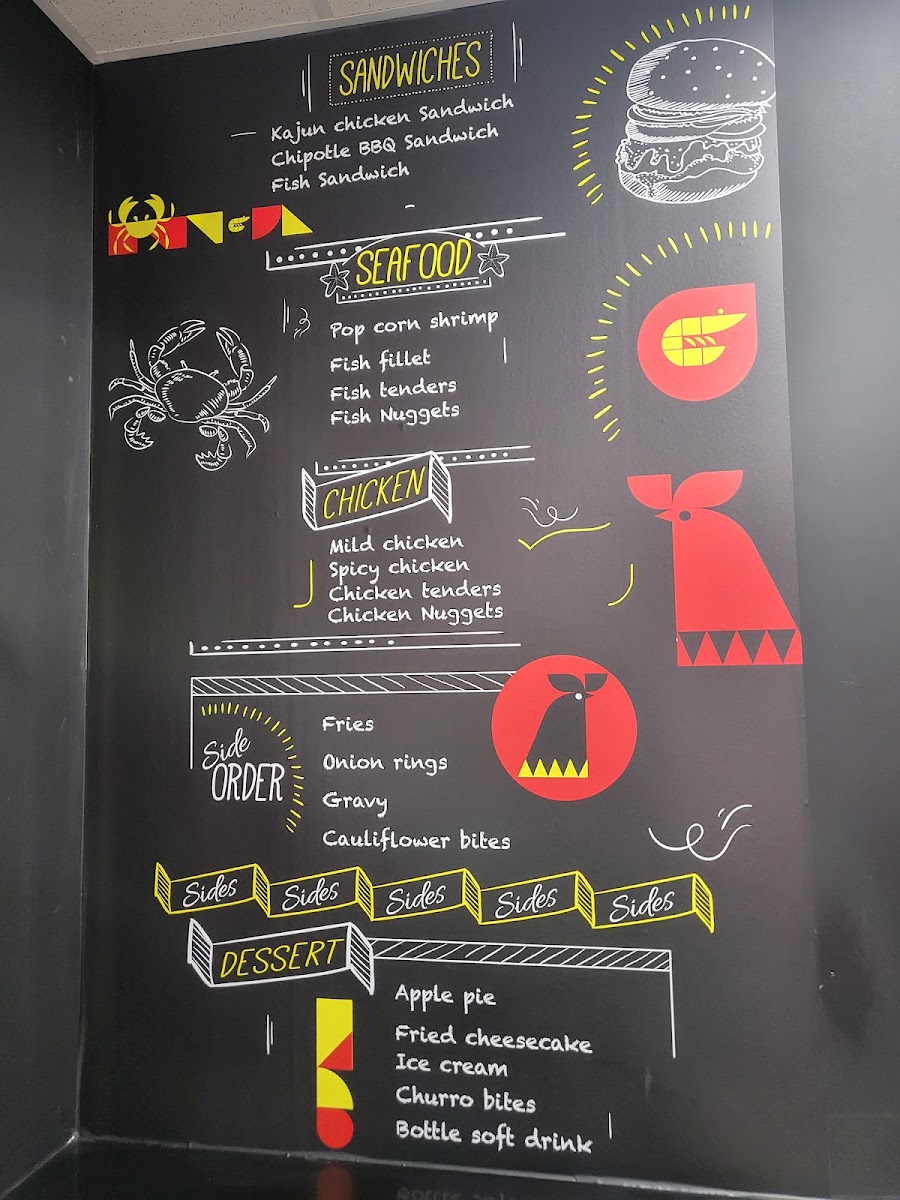 SANDWICHES
Kajun chicken Sandwich
Chipotle BBQ Sandwich
Fish Sandwich
SEAFOOD
Pop corn shrimp
Fish fillet
Fish tenders
Fish Nuggets
CHICKEN
Mild chicken
Spicy chicken
Chicken tenders
Chicken Nuggets
Side
ORDER
Fries
Onion rings
Gravy
Cauliflower bites
Sides Sides Sides Sides Sides
DESSERT
Apple pie
Fried cheesecake
Ice cream
Churro bites
Bottle soft drink